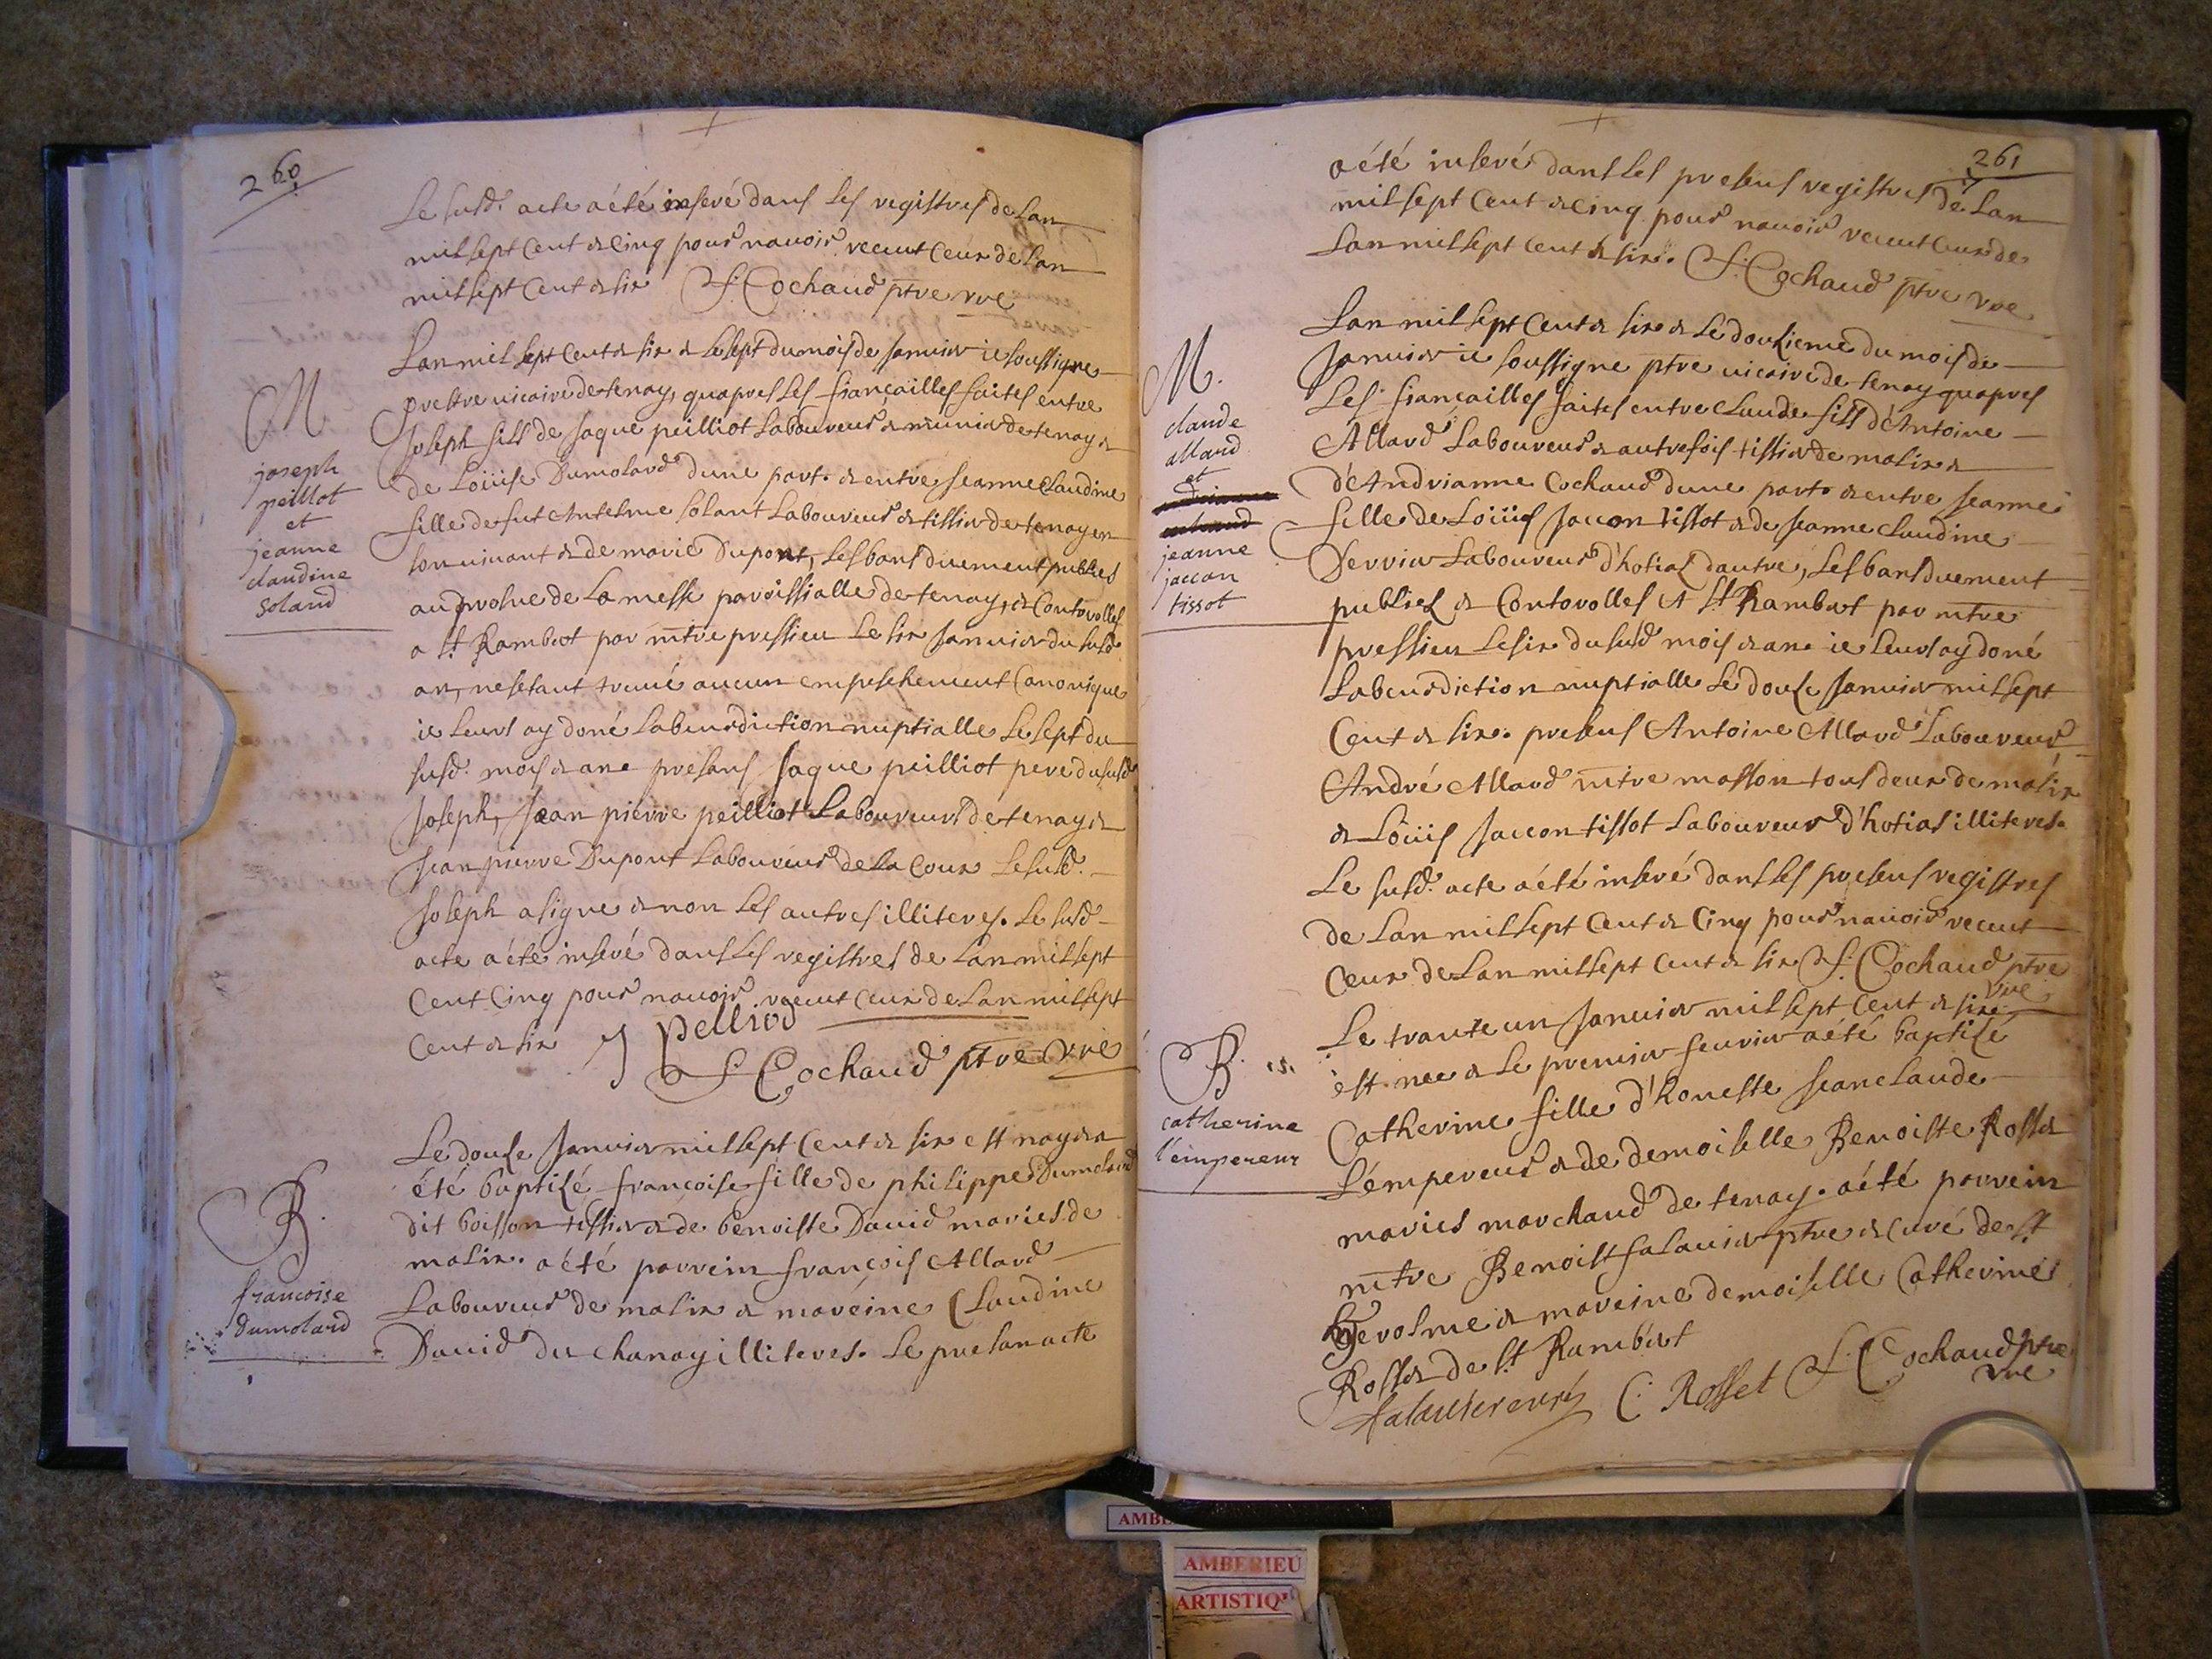 260
Le susd. acte a été inseré dans les registres de Lan
mil sept cent & cinq pour navoir receut ceux de Lan
mil sept cent & six F: Cochaud ptre vre
M
joseph
peillot
et
jeanne
claudine
soland
Lan mil sept cent & six & le sept du mois de Janvier ie soussigne
prestre vicaire de tenay, quapres les fiançailles faites entre
Joseph fils de Jaque peilliot Laboureur & munier de tenay &
de Loüise Dumolard dune part. & entre Jeanne Claudine
fille de fut Antelme solant Laboureur & tissier de tenay en
son vivant & de marie Dupont, les bans duement publies
au prosne de La messe paroissialle de tenay, & Controlles
a St Rambert par mtre pressieu Le six Janvier du susd
an, ne sestant trouvé aucun empeschement Canonique
ie leurs ay doné La benediction nuptialle Le sept du
susd. mois & an. presans Jaque peilliot pere du susd
Joseph, Jean pierre peilliot Laboureurs de tenay &
Jean pierre Dupont Laboureur de La Cour Le susd.
Joseph a signe & non les autres illiteres. Le susd
acte a été inseré dans les registres de Lan mil sept
Cent Cinq pour navoir receut ceux de Lan mil sept
Cent & six J pelliod
F: Cochaud ptre vre
B.
francoise
dumolard
Le douze Janvier mil sept cent & six est nay & a
été baptizé françoise fille de philippe Dumolard
dit boisson tissier & de benoiste David maries de
malix. a été parrein françois Allard
Laboureur de malix & mareine Claudine
David du Chanay illiteres. Le presan acte
261
a été inseré dans les presens registres de Lan
mil sept Cent & Cinq pour navoir receut Ceux de
Lan mil sept Cent & six. F: Cochaud ptre vre
M.
claude
allard
et
jeanne
jaccon
tissot
Lan mil sept Cent & six & Le douzieme du mois de
Janvier ie soussigne ptre vicaire de tenay quapres
Les fiançailles faites entre Claude fils d'Antoine
Allard Laboureur & autrefois tissier de malix &
d'Andrianne Cochaud dune part. & entre Jeanne
fille de Loüis Jaccon tissot & de Jeanne Claudine
Derrier Laboureur d'hotias dautre, Les bans duement
publiez & Controlles A St Rambert par mtre
pressieu Le six du susd mois & an. ie Leurs ay doné
La benediction nuptialle Le douze Janvier mil sept
Cent & six. presens Antoine Allard Laboureur
André Allard mtre masson tous deux de malix
& Loüis Jaccon tissot Laboureur d'hotias illiteres.
Le susd. acte a été inseré dans les presens registres
de Lan mil sept Cent & Cinq pour navoir receut
Ceux de Lan mil sept Cent & six F: Cochaud ptre
vre
B.
catherine
l'empereur
Le trante un Janvier mil sept Cent & six
est nee & Le premier fevrier a été baptizé
Catherine fille d'honeste Jean Claude
L'empereur & de demoiselle Benoiste Rosset
maries marchand de tenay. a été parrein
mtre Benoist falavier ptre & curé de St
Gerosme & mareine demoiselle Catherine
Rosset de St Rambert
falavier curé C: Rosset F: Cochaud ptre
vre
AMBERIEU
ARTISTIQ